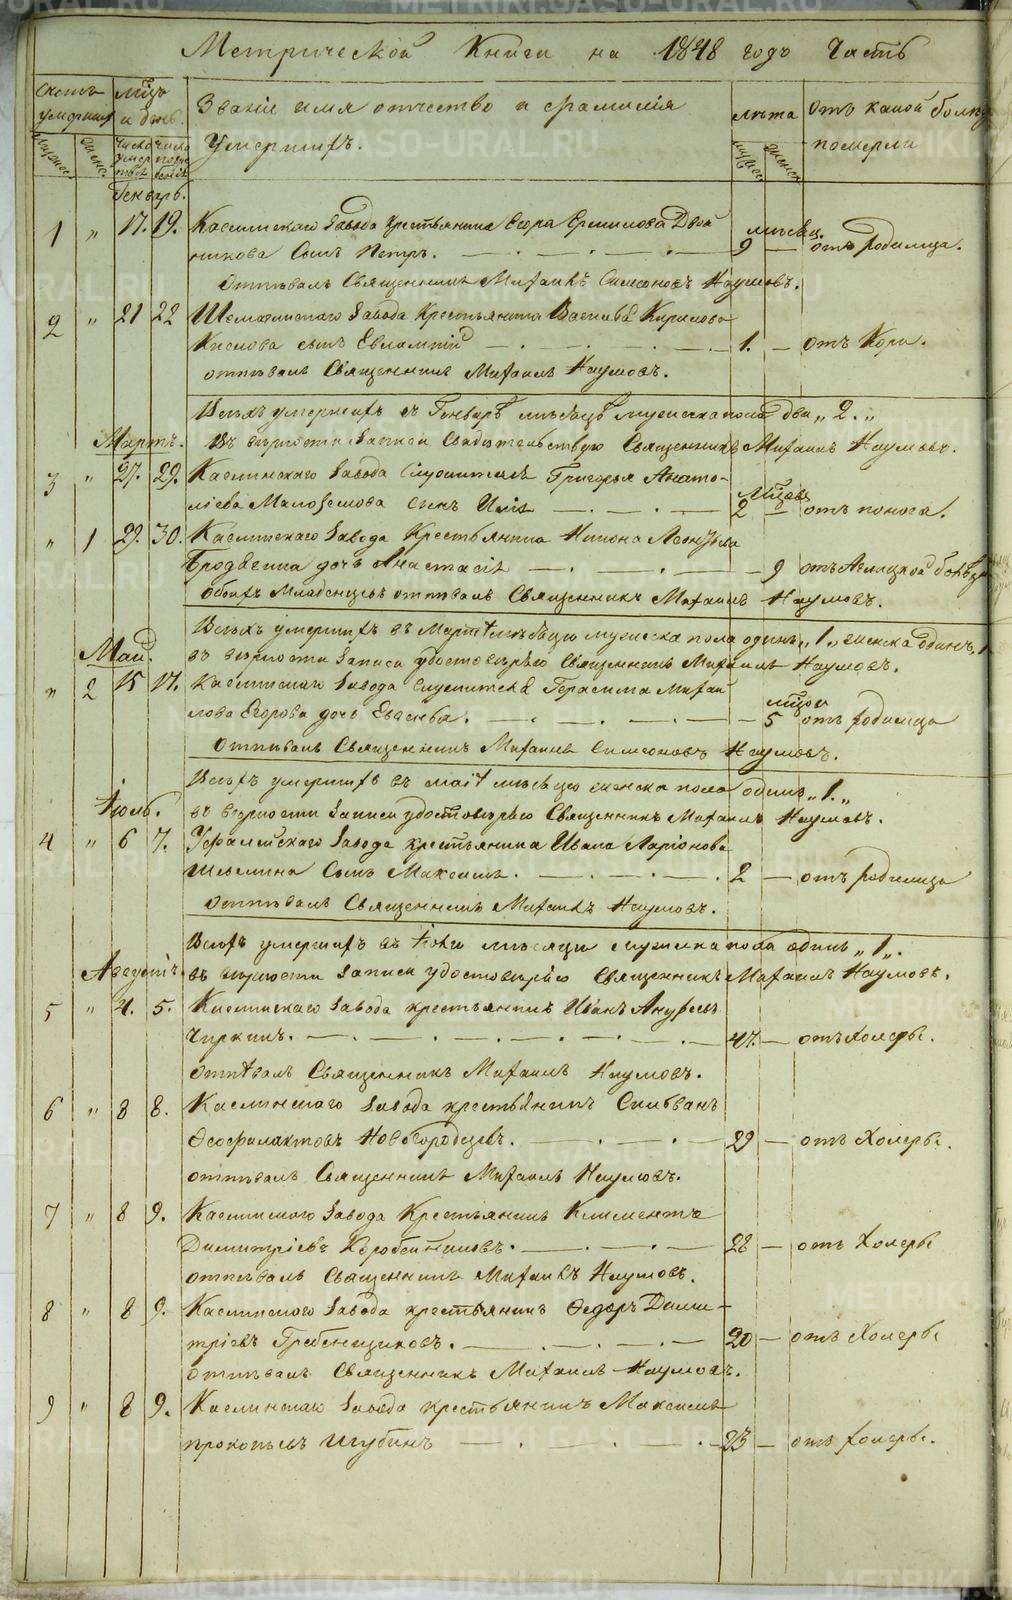 Метрической Книги на 1848 годъ Часть
Счетъ умершихъ
Мужес. женс.
Мѣсяцъ и день.
Число умертвія Число погребенія
Званіе имя отчество и фамилія
умершихъ.
лѣта
мужес. женск.
отъ какой болѣз
померли
Генварь.
1 „ 17. 19. Каслинскаго Завода крестьянина Егора Ермилова Двой
никова Сынъ Петръ. мѣсяц. 9 — отъ родимца.
Отпѣвалъ Священникъ Михаилъ Симеоновъ Наумовъ.
2 „ 21 22 Шемахинскаго Завода Крестьянина Василья Кирилова
Кислова сынъ Евлампій 1. — отъ Кори.
отпѣвалъ Священникъ Михаилъ Наумовъ.
Всѣхъ умершихъ въ Генварѣ мѣсяцѣ мужеска пола два „ 2. „
Мартъ. Въ вѣрности записи Свидѣтельствую Священникъ Михаилъ Наумовъ.
3 „ 27. 29. Каслинскаго Завода Служителя Григорья Анато-
ліева Малоземова сынъ Илія мѣсяц 2 — отъ поноса.
„ 1 29. 30. Каслинскаго Завода Крестьянина Никона Леонтьева
Бродягина дочь Анастасія — 9 отъ
Обоихъ Младенцевъ отпѣвалъ Священникъ Михаилъ Наумовъ.
Всѣхъ умершихъ въ Мартѣ мѣсяцѣ мужеска пола одинъ „ 1 „ женска одинъ „ 1
Май. въ вѣрности записи удостовѣряю Священникъ Михаилъ Наумовъ.
„ 2 15 17. Каслинскаго Завода служителя Герасима Михай
лова Егорова дочь Евгенья. — мѣсяц 5 отъ родимца
Отпѣвалъ Священникъ Михаилъ Симеоновъ Наумовъ.
Всѣхъ умершихъ въ маіѣ мѣсяцѣ женска пола одинъ „ 1. „
Іюль. въ вѣрности записи удостовѣряю Священникъ Михаилъ Наумовъ.
4 „ 6 7. Уфалейскаго Завода крестьянина Ивана Ларіонова
Шевелина Сынъ Максимъ. 2 — отъ родимца
Отпѣвалъ Священникъ Михаилъ Наумовъ.
Всѣхъ умершихъ въ Іюли мѣсяцѣ мужеска пола одинъ „ 1 „.
Августъ. въ вѣрности записи удостовѣряю Священникъ Михаилъ Наумовъ.
5 „ 4. 5. Каслинскаго Завода крестьянинъ Иванъ Ануфьевъ
Чиркинъ. 47. — отъ Холеры.
Отпѣвалъ Священникъ Михаилъ Наумовъ.
6 „ 8 8. Каслинскаго Завода крестьянинъ Сильванъ
Ѳеофилактовъ Новогородцевъ. 29 — отъ Холеры.
отпѣвалъ Священникъ Михаилъ Наумовъ.
7 „ 8 9. Каслинскаго Завода Крестьянинъ Климентъ
Димитріевъ Коробейниковъ. 28 — отъ Холеры
отпѣвалъ Священникъ Михаилъ Наумовъ.
8 „ 8 9. Каслинскаго Завода крестьянинъ Ѳедоръ Дими-
тріевъ Гребенщиковъ. 20 — отъ Холеры
отпѣвалъ Священникъ Михаилъ Наумовъ.
9 „ 8 9. Каслинскаго Завода крестьянинъ Максимъ
Прокопьевъ Шубинъ 23 — отъ холеры.
METRIKI.GASO-URAL.RU